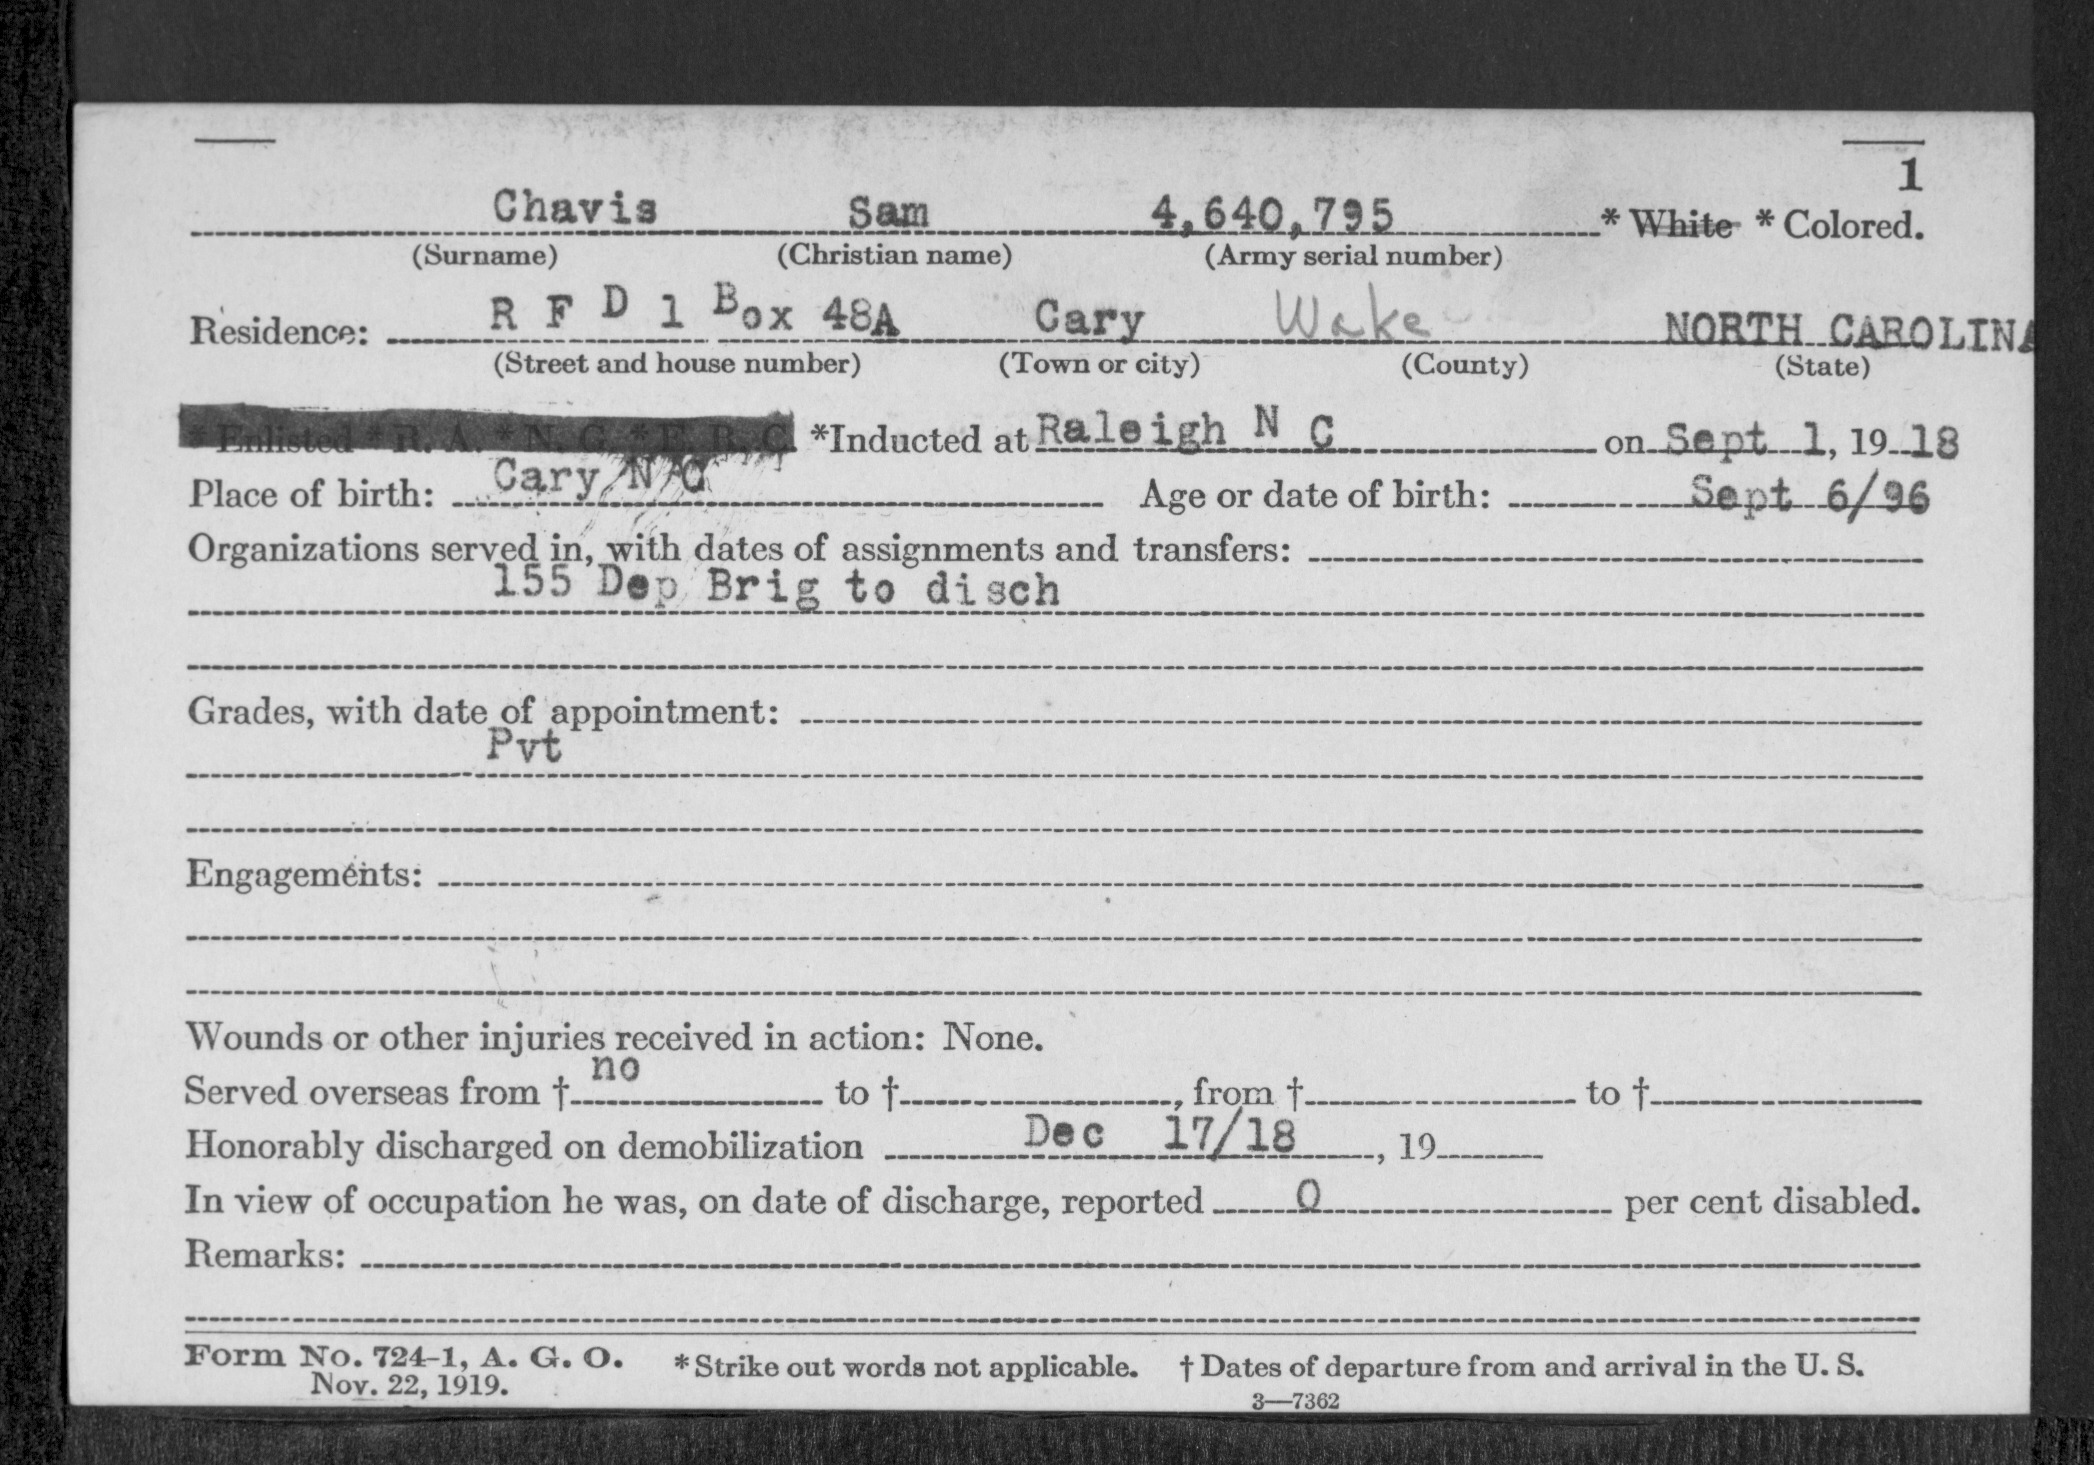 1
Chavis Sam 4,640,795 * White * Colored.
(Surname) (Christian name) (Army serial number)
Residence: R F D 1 Box 48A Cary Wake NORTH CAROLINA
(Street and house number) (Town or city) (County) (State)
* Enlisted * R. A. * N. G. * E. R. C. *Inducted at Raleigh N C on Sept 1, 19 18
Place of birth: Cary N C Age or date of birth: Sept 6/96
Organizations served in, with dates of assignments and transfers:
155 Dep Brig to disch
Grades, with date of appointment:
Pvt
Engagements:
Wounds or other injuries received in action: None.
Served overseas from † no to †, from † to †
Honorably discharged on demobilization Dec 17/18, 19
In view of occupation he was, on date of discharge, reported 0 per cent disabled.
Remarks:
Form No. 724-1, A. G. O. * Strike out words not applicable. † Dates of departure from and arrival in the U. S.
Nov. 22, 1919.
3—7362